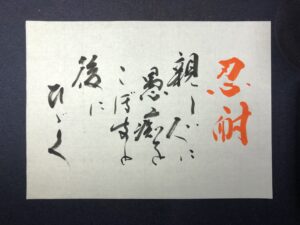 忍耐
親しい人に
愚痴を
こぼすと
後に
ひゞく